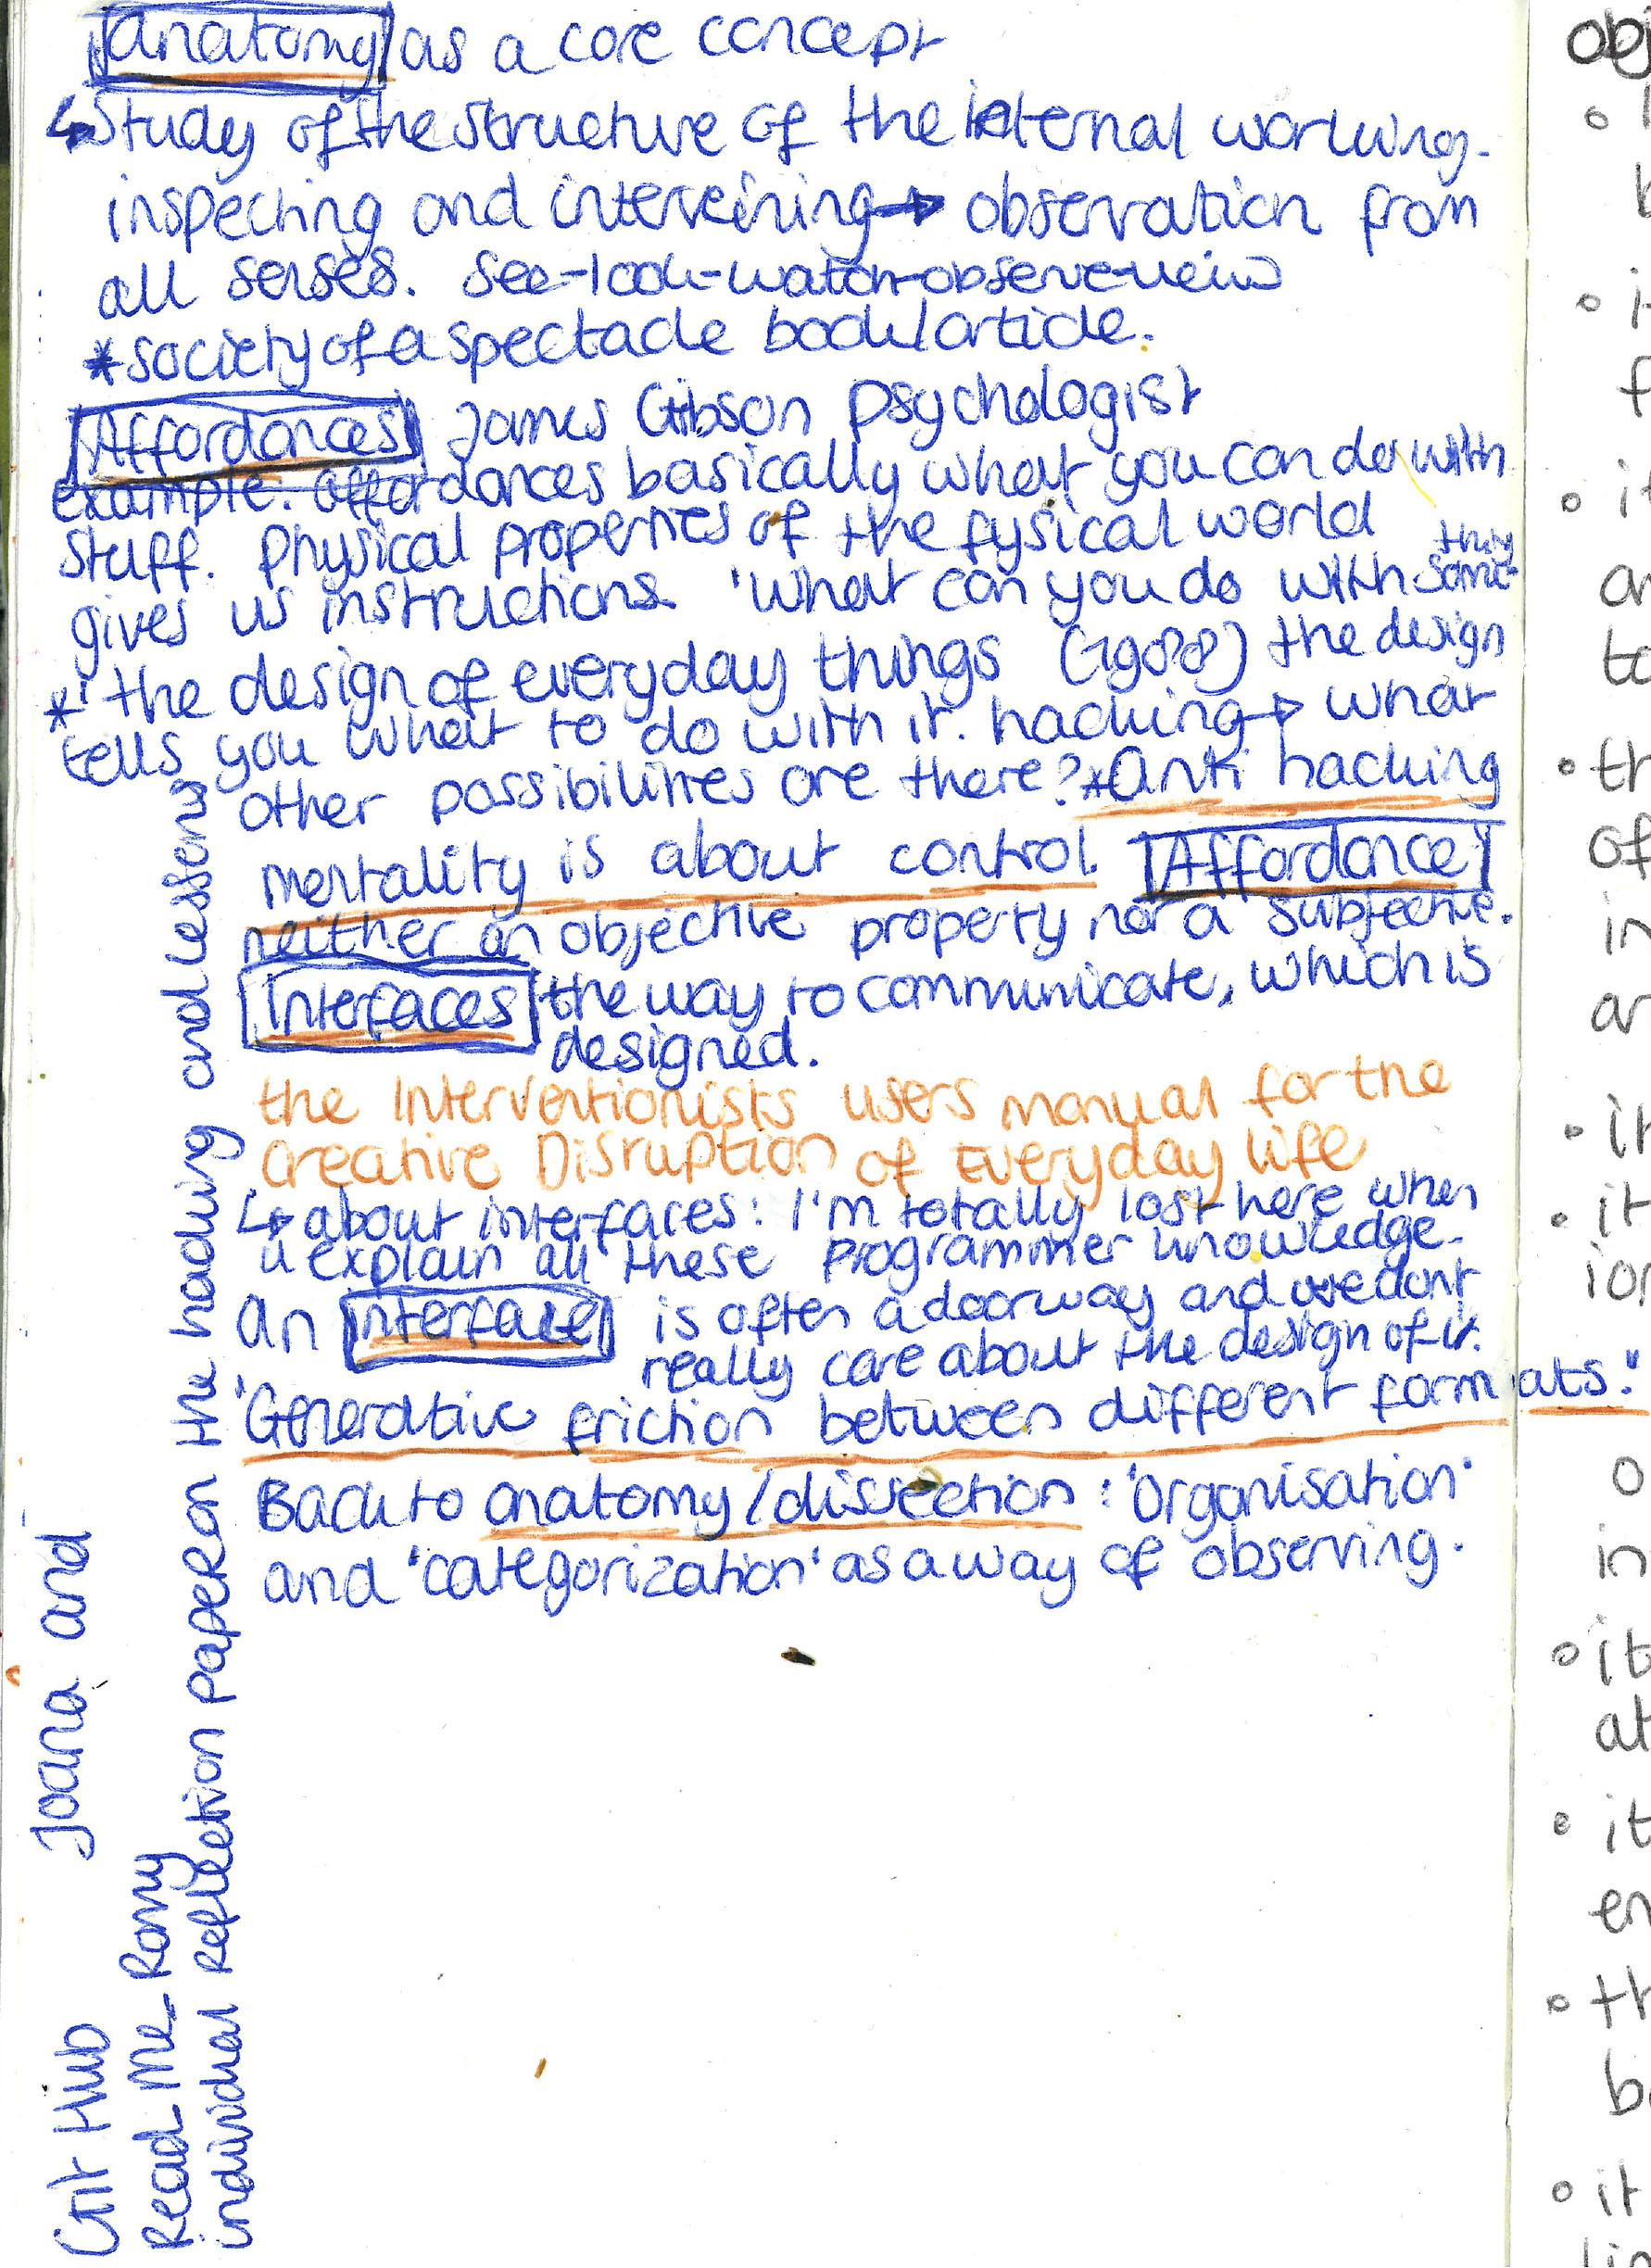 Anatomy as a core concept
↳ Study of the structure of the internal working.
inspecting and interveining → observation from
all senses. See-look-watch-observe-view
* society of a spectacle book/article.
Affordances James Gibson Psychologist
example. affordances basically what you can do with
stuff. Physical properties of the fysical world
gives us instructions. 'What can you do with some-
thing
*" the design of everyday things (1988) the design
tells you what to do with it. hacking → what
other possibilities are there? *Anti hacking
mentality is about control. Affordance
neither an objective property nor a subjective.
Interfaces the way to communicate, which is
designed.
the Interventionists users manual for the
Creative Disruption of Everyday life
↳ about interfaces: I'm totally lost here when
u explain all these programmer knowledge.
An interface is often a doorway and we dont
really care about the design of it.
'Generative friction between different formats."
Back to anatomy/dissection: 'Organisation'
and 'categorization' as a way of observing.
Git Hub Joana and
Read_Me_Romy
individual reflection paper on the hacking and lessens
obj